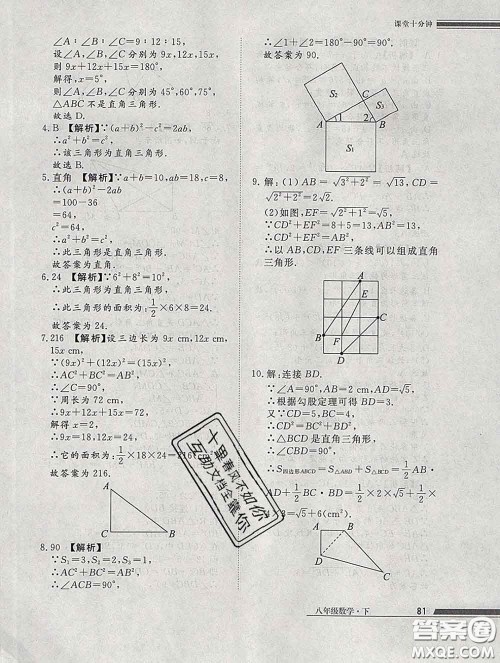 课堂十分钟
∠A∶∠B∶∠C=9∶12∶15,
设∠A、∠B、∠C 分别为 9x,12x,15x,
则 9x+12x+15x=180°,
解得,x=5,
则∠A、∠B、∠C 分别为 45°,60°,75°,
△ABC 不是直角三角形,
故选 D.
4. B 【解析】∵(a+b)²−c²=2ab,
∴a²+b²=c²,
∴该三角形为直角三角形,
故选 B.
5. 直角 【解析】∵a+b=10,ab=18,c=8,
∴(a+b)²−2ab
=100−36
=64,
c²=64,
∴a²+b²=c²,
∴此三角形是直角三角形.
故答案为直角.
6. 24 【解析】∵6²+8²=10²,
∴此三角形为直角三角形,
∴此三角形的面积为:1/2×6×8=24.
故答案为 24.
7. 216 【解析】设三边长为 9x cm,12x cm,
15x cm,
∵(9x)²+(12x)²=(15x)²,
∴AC²+BC²=AB²,
∴∠C=90°,
∵周长为 72 cm,
∴9x+12x+15x=72,
解得 x=2,
∴9x=18,12x=24,
∴它的面积为:1/2×18×24=216,
故答案为 216.
A
C
B
8. 90 【解析】
∵S₁=3,S₂=2,S₃=1,
∴AC²+BC²=AB²,
∴∠ACB=90°,
∴∠1+∠2=180°−90°=90°.
故答案为 90.
S₂
C
S₃
A
1
2
B
S₁
9. 解:(1) AB=√(3²+2²)=√13,CD=
√(2²+2²)=2√2.
(2)如图,EF=√(2²+1²)=√5,
∵CD²+EF²=8+5=13,AB²=13,
∴CD²+EF²=AB²,
∴以 AB、CD、EF 三条线可以组成直角
三角形.
A
E
F
B
C
D
10. 解:连接 BD.
∵∠A=90°,AB=2 cm,AD=√5,
∴根据勾股定理可得 BD=3,
又∵CD=5,BC=4,
∴CD²=BC²+BD²,
∴△BCD 是直角三角形,
∴∠CBD=90°,
∴S四边形ABCD=S△ABD+S△BCD=1/2 AB·
AD+1/2 BC·BD=1/2×2×√5+1/2×4
×3=√5+6(cm²).
A
B
D
C
十里春风不如你
互助文档全靠你
八年级数学·下
81
答案圈
MXQE.COM